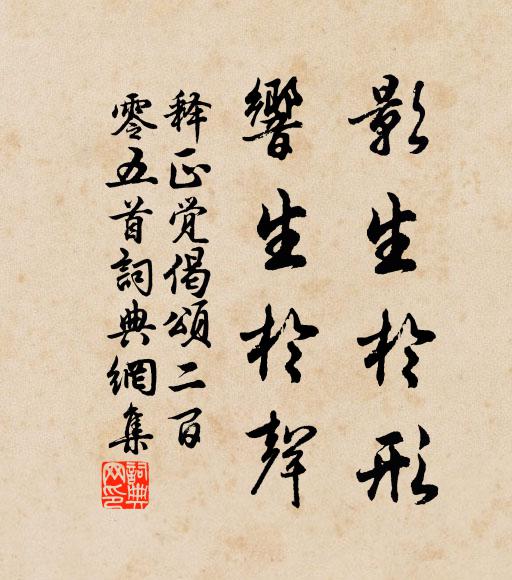 影生於形
響生於聲
释正觉偈頌二百
零五首詞典網集
詞典網印